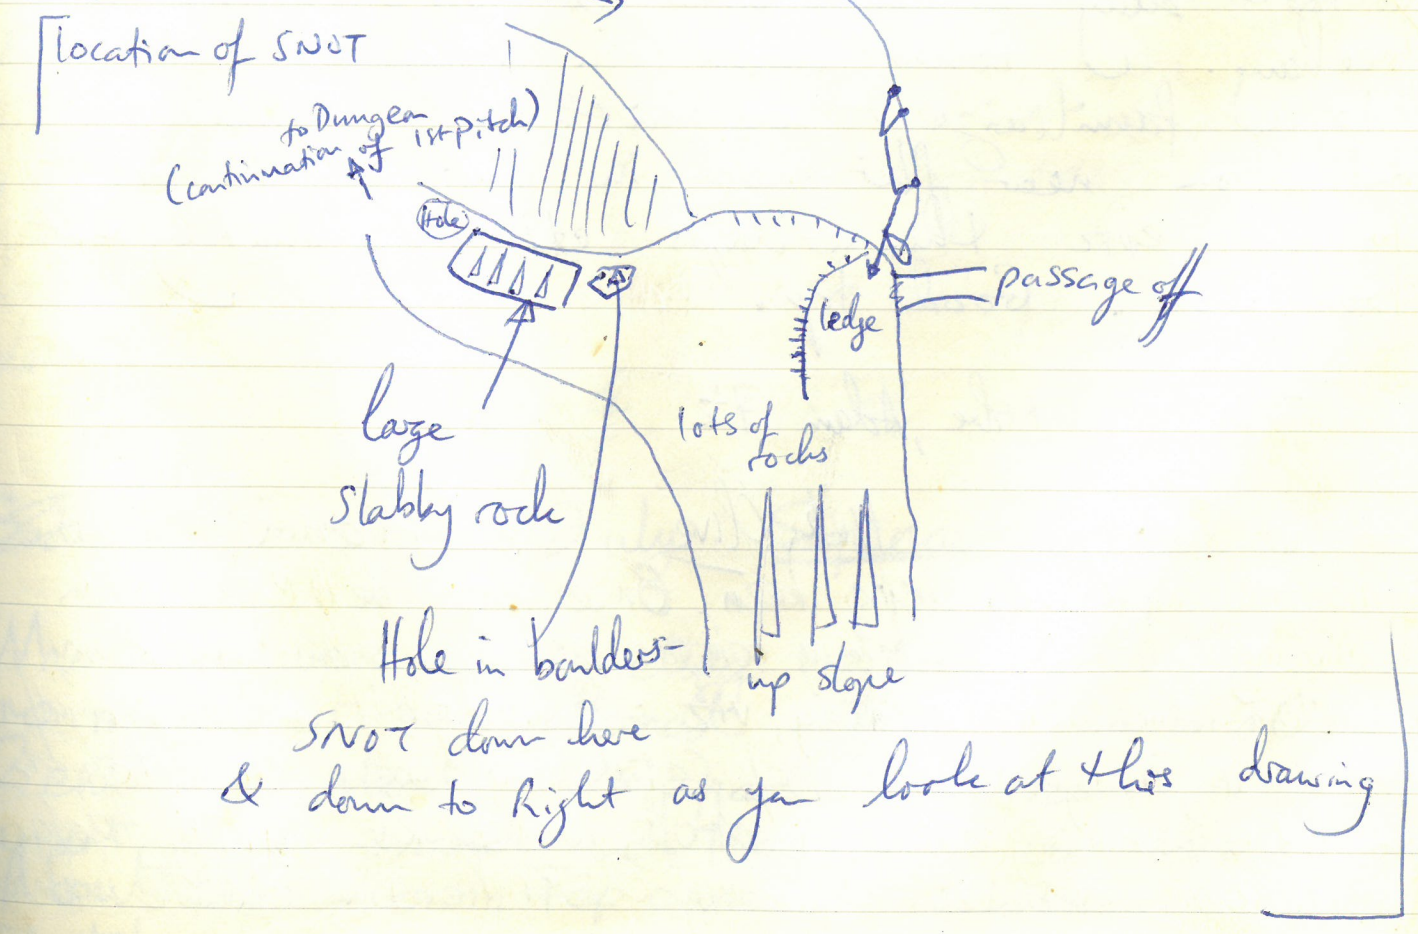 location of SNOT
to Dungeon
(continuation of 1st pitch)
Hole
passage off
ledge
large
slabby rock
lots of
rocks
Hole in boulders-
up slope
SNOT down here
& down to Right as you look at this drawing